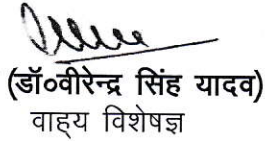 (डॉ०वीरेन्द्र सिंह यादव)
वाह्य विशेषज्ञ